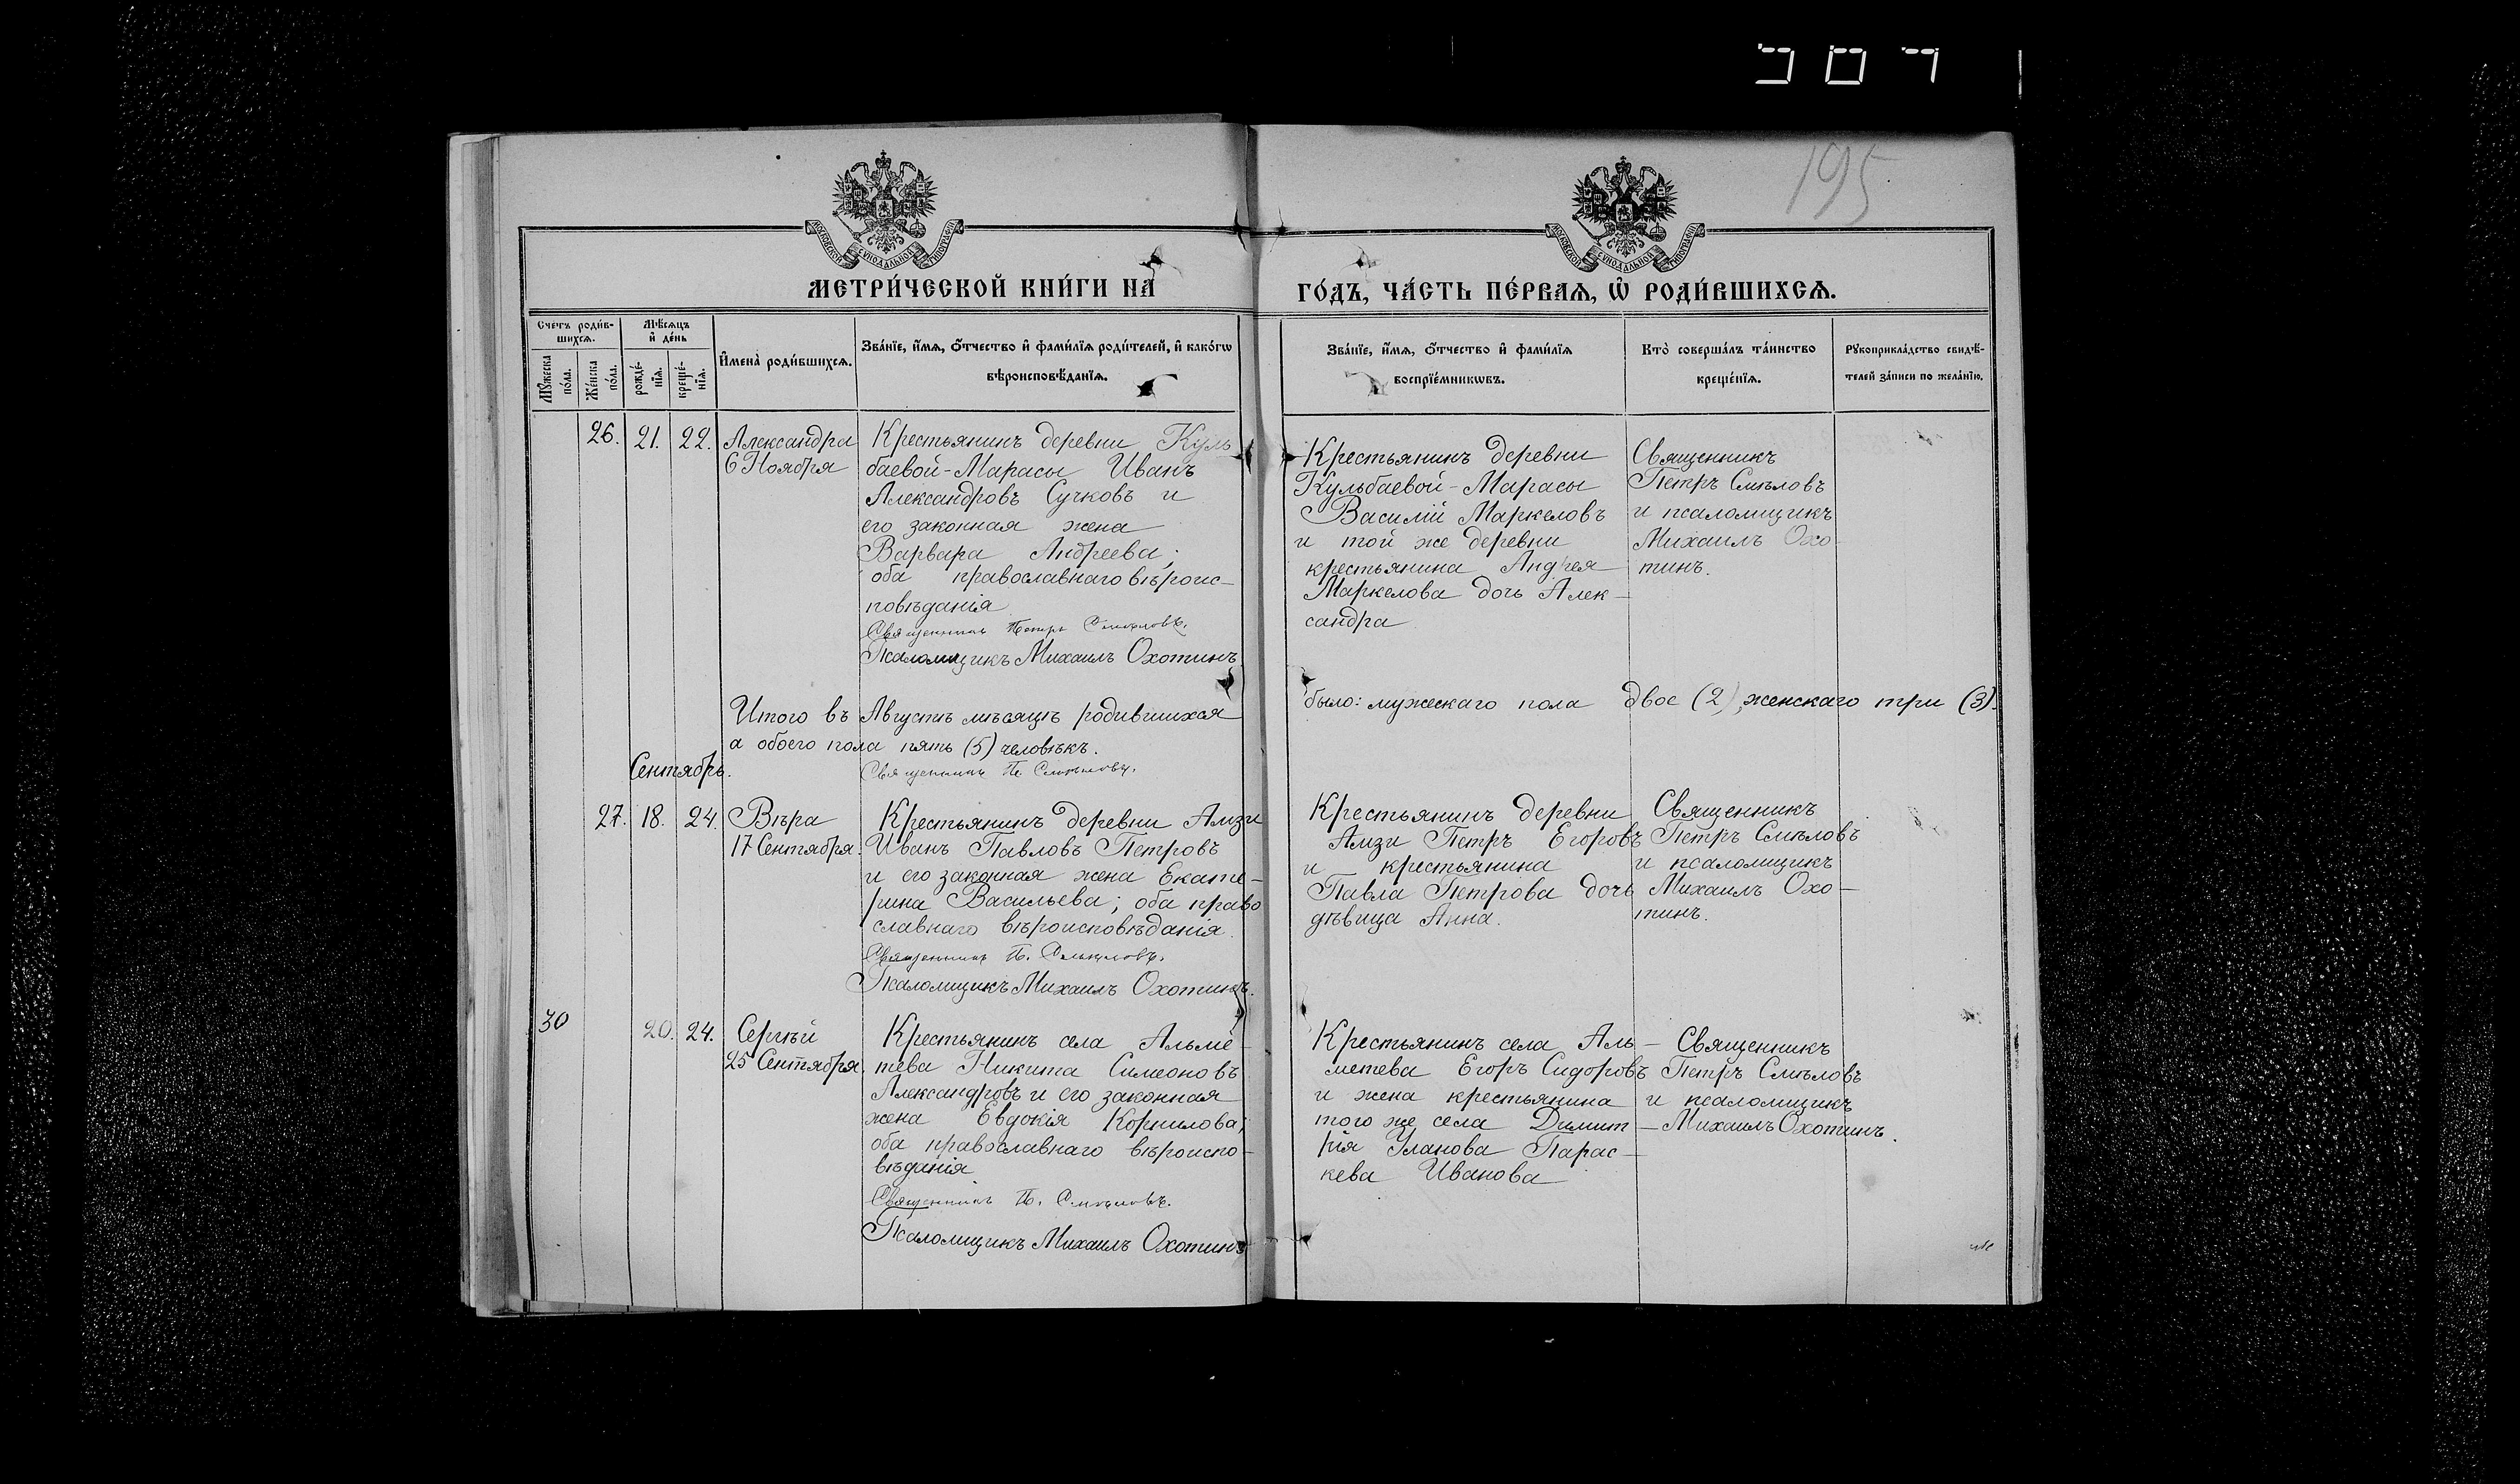 195
МОСКОВСКОЙ СУНОДАЛЬНОЙ ТИПОГРАФІИ
МОСКОВСКОЙ СУНОДАЛЬНОЙ ТИПОГРАФІИ
МЕТРИ́ЧЕСКОЙ КНИ́ГИ НА̀ ГО́ДЪ, ЧА́СТЬ ПЕ́РВАѦ, Ѽ РОДИ́ВШИХСѦ.
Сче́тъ роди́в-
шихсѧ.
Мꙋ́жеска по́ла.
Же́нска по́ла.
Мѣ́сѧцъ
и҆ де́нь
рожде́-
нїѧ.
креще́-
нїѧ.
И҆мена̀ роди́вшихсѧ.
Зва́нїе, и҆́мѧ, ѻ҆́тчество и҆ фами́лїѧ роди́телей, и҆ како́гѡ
вѣроисповѣ́данїѧ.
Зва́нїе, и҆́мѧ, ѻ҆́тчество и҆ фами́лїѧ
воспрїе́мникѡвъ.
Кто̀ соверша́лъ та́инство
креще́нїѧ.
Рꙋкоприкла́дство свидѣ́-
телей за́писи по жела́нїю.
26.
21.
22.
Александра
6 Ноября
Крестьянинъ деревни Куль
баевой-Марасы Иванъ
Александровъ Сучковъ и
его законная жена
Варвара Андреева;
оба православнаго вѣроис-
повѣданія
Священникъ Петръ Смѣловъ.
Псаломщикъ Михаилъ Охотинъ
Крестьянинъ деревни
Кульбаевой-Марасы
Василій Маркеловъ
и той же деревни
крестьянина Андрея
Маркелова дочь Алек-
сандра
Священникъ
Петръ Смѣловъ
и псаломщикъ
Михаилъ Охо-
тинъ.
Итого въ Августѣ мѣсяцѣ родившихся было: мужескаго пола двое (2), женскаго три (3).
а обоего пола пять (5) человѣкъ.
Священникъ П Смѣловъ.
Сентябрь.
27.
18.
24.
Вѣра
17 Сентября.
Крестьянинъ деревни Амзи
Иванъ Павловъ Петровъ
и его законная жена Екате-
рина Васильева; оба право
славнаго вѣроисповѣданія.
Священникъ П. Смѣловъ.
Псаломщикъ Михаилъ Охотинъ.
Крестьянинъ деревни
Амзи Петръ Егоровъ
и крестьянина
Павла Петрова дочь
дѣвица Анна.
Священникъ
Петръ Смѣловъ
и псаломщикъ
Михаилъ Охо-
тинъ.
30
20.
24.
Сергѣй
25 Сентября.
Крестьянинъ села Альме-
тева Никита Симеоновъ
Александровъ и его законная
жена Евдокія Корнилова;
оба православнаго вѣроиспо-
вѣданія
Священникъ П. Смѣловъ.
Псаломщикъ Михаилъ Охотинъ
Крестьянинъ села Аль-
метева Егоръ Сидоровъ
и жена крестьянина
того же села Димит-
рія Уланова Парас-
кева Иванова
Священникъ
Петръ Смѣловъ
и псаломщикъ
Михаилъ Охотинъ.